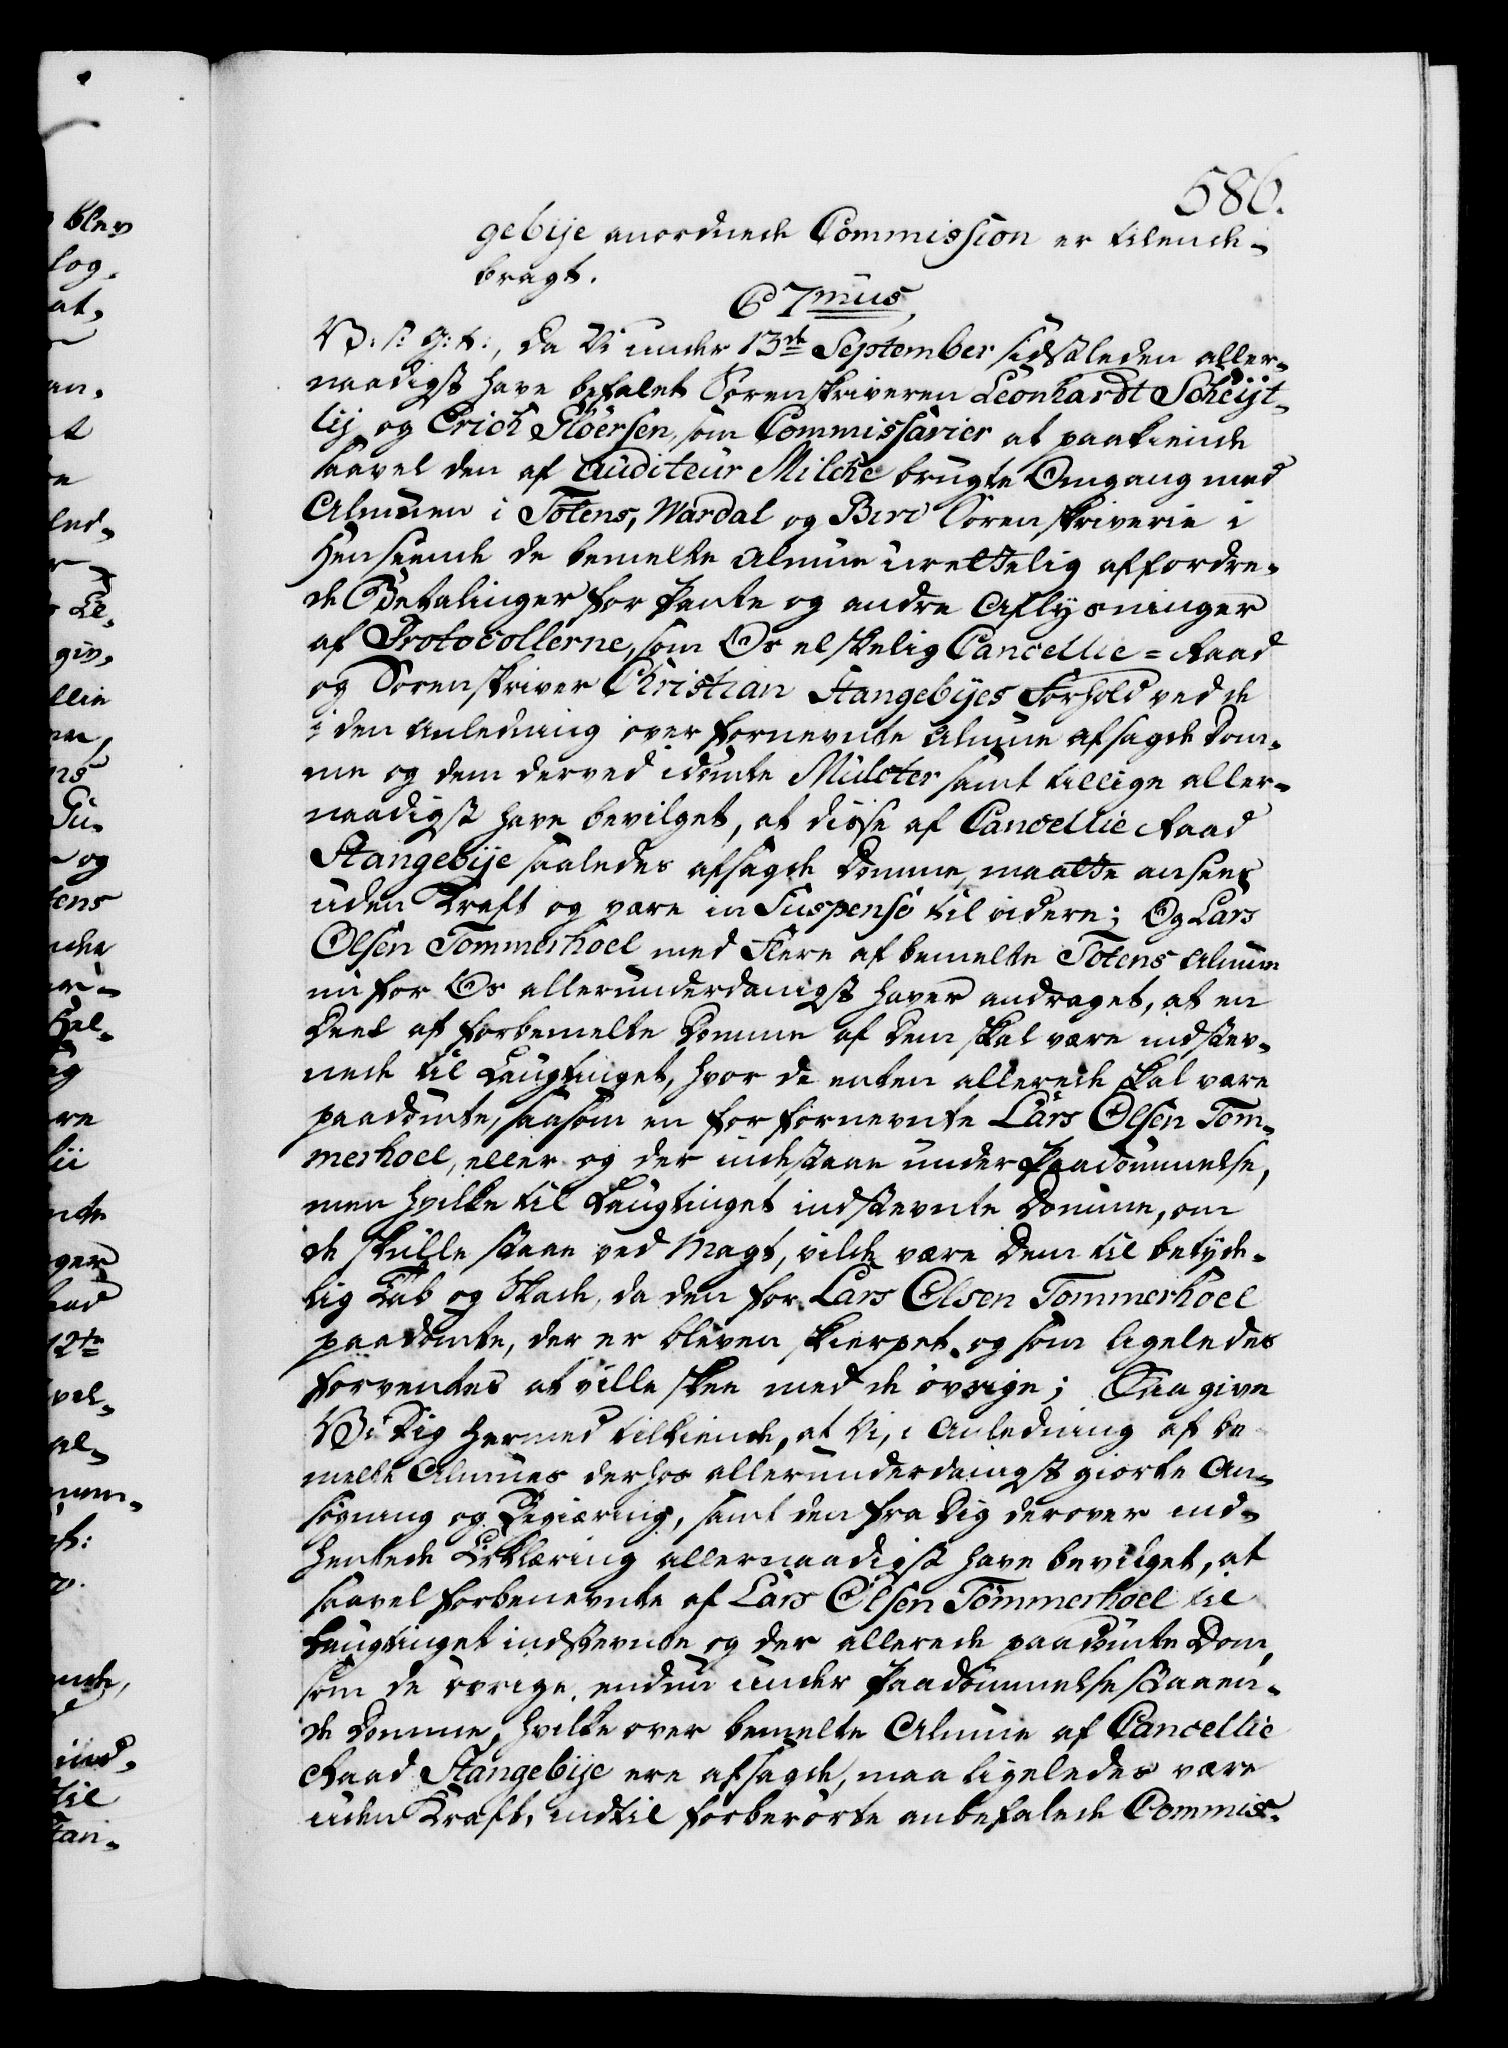 586.
gebije anordnede Commission er tilende-
bragt.
67mus,
V. s: G: t:, da Vi under 13de September sidstleden aller-
naadigst have befalet Sorenskriveren Leonhardt Scheijt-
lij og Erich Floersen, som Commissarier at paakiende
saavel den af Auditeur Milche brugte Omgang med
Almuen i Totens, Wardal og Biri Sorenskriverie i
Henseende de bemelte Almue urettelig affordre-
de Betalinger for Pante og andre Aflysninger
af Protocollerne, som Os elskelig Cancellie-Raad
og Sorenskriver Christian Stangebijes Forhold ved de
i den Anledning over fornevnte Almue afsagde Dom-
me og dem derved idömte Mulcter samt tillige aller-
naadigst have bevilget, at disse af Cancellie Raad
Stangebije saaledes afsagde Domme, maatte ansees
uden Kraft og være in Suspenso til videre; Og Lars
Olsen Tommerhoel med Flere af bemelte Totens Almue
nu for Os allerunderdanigst haver andraget, at en
Deel af forbemelte Domme af dem skal være indstev-
nede til Laugtinget, hvor de enten allerede skal være
paadömte, saasom en for fornevnte Lars Olsen Tom-
merhoel, eller og der indestaae under Paadömmelse,
men hvilke til Laugtinget indstevnte Domme, om
de skulle staae ved Magt, vilde være dem til betyde-
lig Tab og Skade, da den for Lars Olsen Tommerhoel
paadömte, der er bleven skierpet, og som ligeledes
forventes at ville skee med de övrige; Saa give
Vi Dig hermed tilkiende, at Vi, i Anledning af be-
melte Almues derhos allerunderdanigst giorte An-
sögning og Begiæring, samt den fra Dig derover ind-
hentede Erklæring allernaadigst have bevilget, at
saavel forbenevnte af Lars Olsen Tommerhoel til
Laugtinget indstevnte og der allerede paadömte Dom,
som de övrige endnu under Paadömmelse staaen-
de Domme, hvilke over bemelte Almue af Cancellie
Raad Stangebije ere afsagde, maa ligeledes være
uden Kraft, indtil forberörte anbefalede Commis-